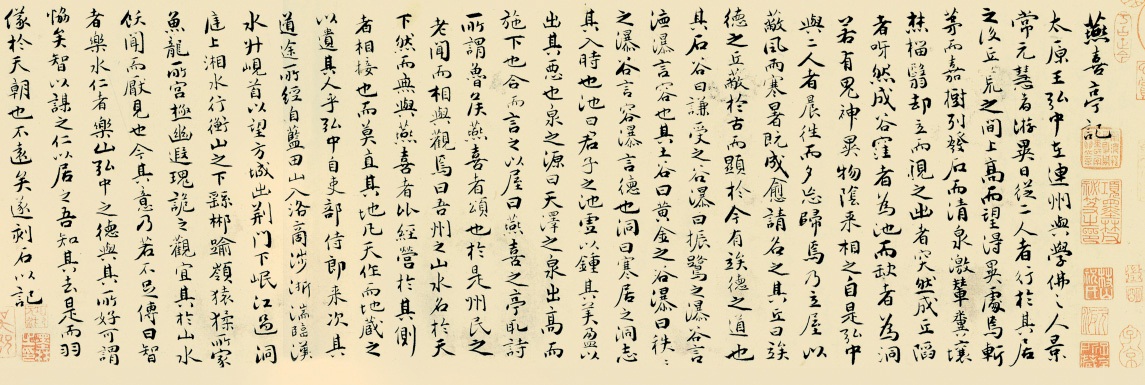 燕喜亭記
太原王弘中在連州與學佛之人景
常元慧者游異日從二人者行於其居
之後丘荒之間上高而望得異處焉斬
茅而嘉樹列發石而清泉激輦糞壤
燔榴翳却立而視之出者突然成丘陷
者呀然成谷窪者為池而缺者為洞
若有鬼神異物陰來相之自是弘中
與二人者晨往而夕忘歸焉乃立屋以
蔽風雨寒暑既成愈請名之其丘曰竢
德之丘蔽於古而顯於今有竢德之道也
其石谷曰謙受之谷瀑曰振鷺之瀑谷言
德瀑言容也其土谷曰黃金之谷瀑曰秩〻
之瀑谷言容瀑言德也洞曰寒居之洞志
其入時也池曰君子之池虛以鍾其美盈以
出其惡也泉之源曰天澤之泉出高而
施下也合而言之以屋曰燕喜之亭取詩
所謂魯侯燕喜者頌也於是州民之
老聞而相與觀焉曰吾州之山水名於天
下然而無與燕喜者比經營於其側
者相接也而莫直其地凡天作而地藏之
以遺其人乎弘中自吏部侍郎来次其
道途所經自藍田山入洛商涉淅湍臨漢
水升峴首以望方城出荊門下岷江過洞
庭上湘水行衡山之下繇郴踰嶺猿猱所家
魚龍所宮極幽遐瑰詭之觀宜其於山水
飫聞而厭見也今其意乃若不足傳曰智
者樂水仁者樂山弘中之德與其所好可謂
協矣智以謀之仁以居之吾知其去是而羽
儀於天朝也不遠矣遂刻石以記